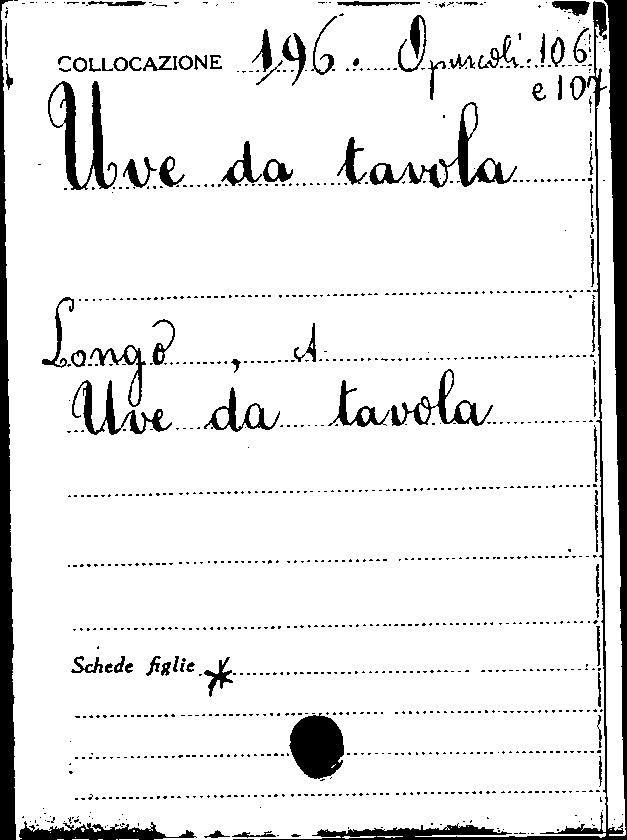 COLLOCAZIONE 196. Opuscoli. 106
e 107
Uve da tavola
Longo, A
Uve da tavola
Schede figlie *